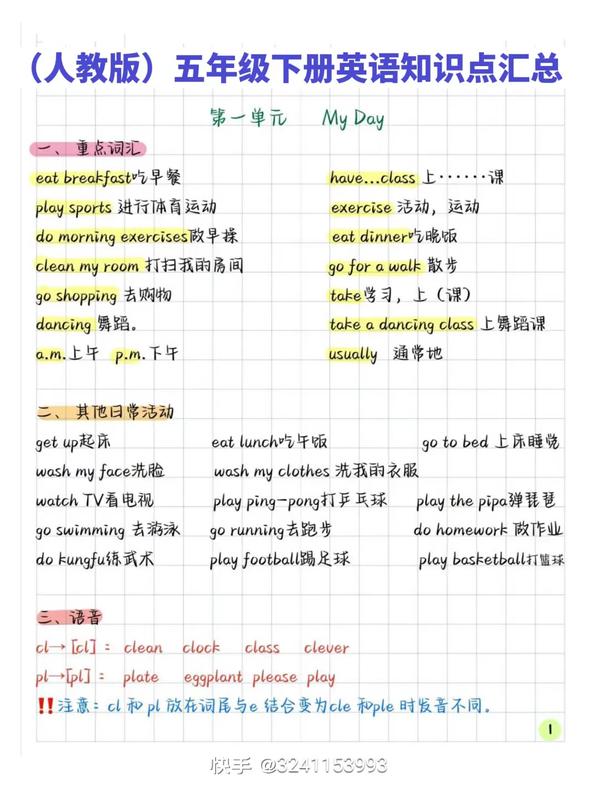 （人教版）五年级下册英语知识点汇总
第一单元 My Day
一、重点词汇
eat breakfast吃早餐 have...class 上······课
play sports 进行体育运动 exercise 活动，运动
do morning exercises做早操 eat dinner吃晚饭
clean my room 打扫我的房间 go for a walk 散步
go shopping 去购物 take学习，上（课）
dancing 舞蹈。 take a dancing class 上舞蹈课
a.m.上午 p.m.下午 usually 通常地
二、其他日常活动
get up起床 eat lunch吃午饭 go to bed 上床睡觉
wash my face洗脸 wash my clothes 洗我的衣服
watch TV看电视 play ping-pong打乒乓球 play the pipa弹琵琶
go swimming 去游泳 go running去跑步 do homework 做作业
do kungfu练武术 play football踢足球 play basketball打篮球
三、语音
cl→[cl]： clean clock class clever
pl→[pl]： plate eggplant please play
‼注意：cl 和 pl 放在词尾与e 结合变为cle 和ple 时发音不同。
1
快手 @3241153993